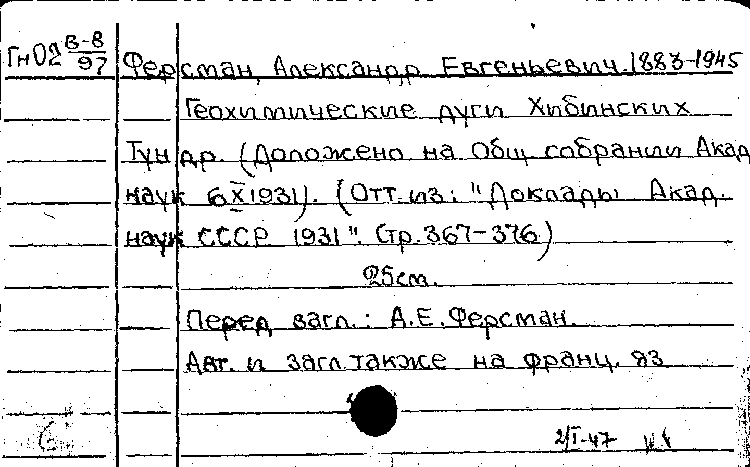 ГнО2 В-8/97
Ферсман, Александр Евгеньевич. 1883-1945
Геохимические дуги Хибинских
Тундр. (Доложено на Общ. собрании Акад.
наук 6 X 1931). (Отт. из: "Доклады Акад.
наук СССР 1931". Стр. 367-376)
25см.
Перед загл.: А.Е. Ферсман.
Авт. и загл. также на франц. яз.
2/I-47